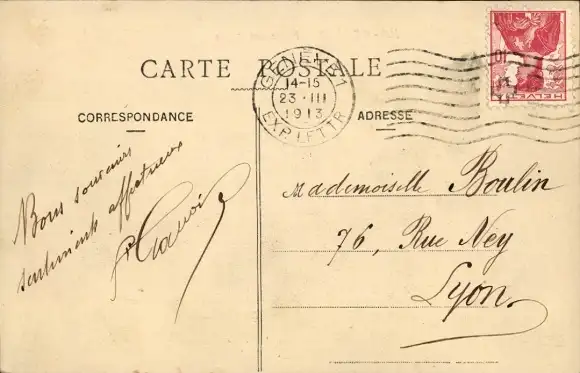 CARTE POSTALE
GENÈVE 1
14-15
23 · III
1913
EXP. LETTR.
HELVETIA
CORRESPONDANCE
ADRESSE
Bons souvenirs
sentiments affectueux
Mademoiselle Boulin
76, Rue Ney
Lyon